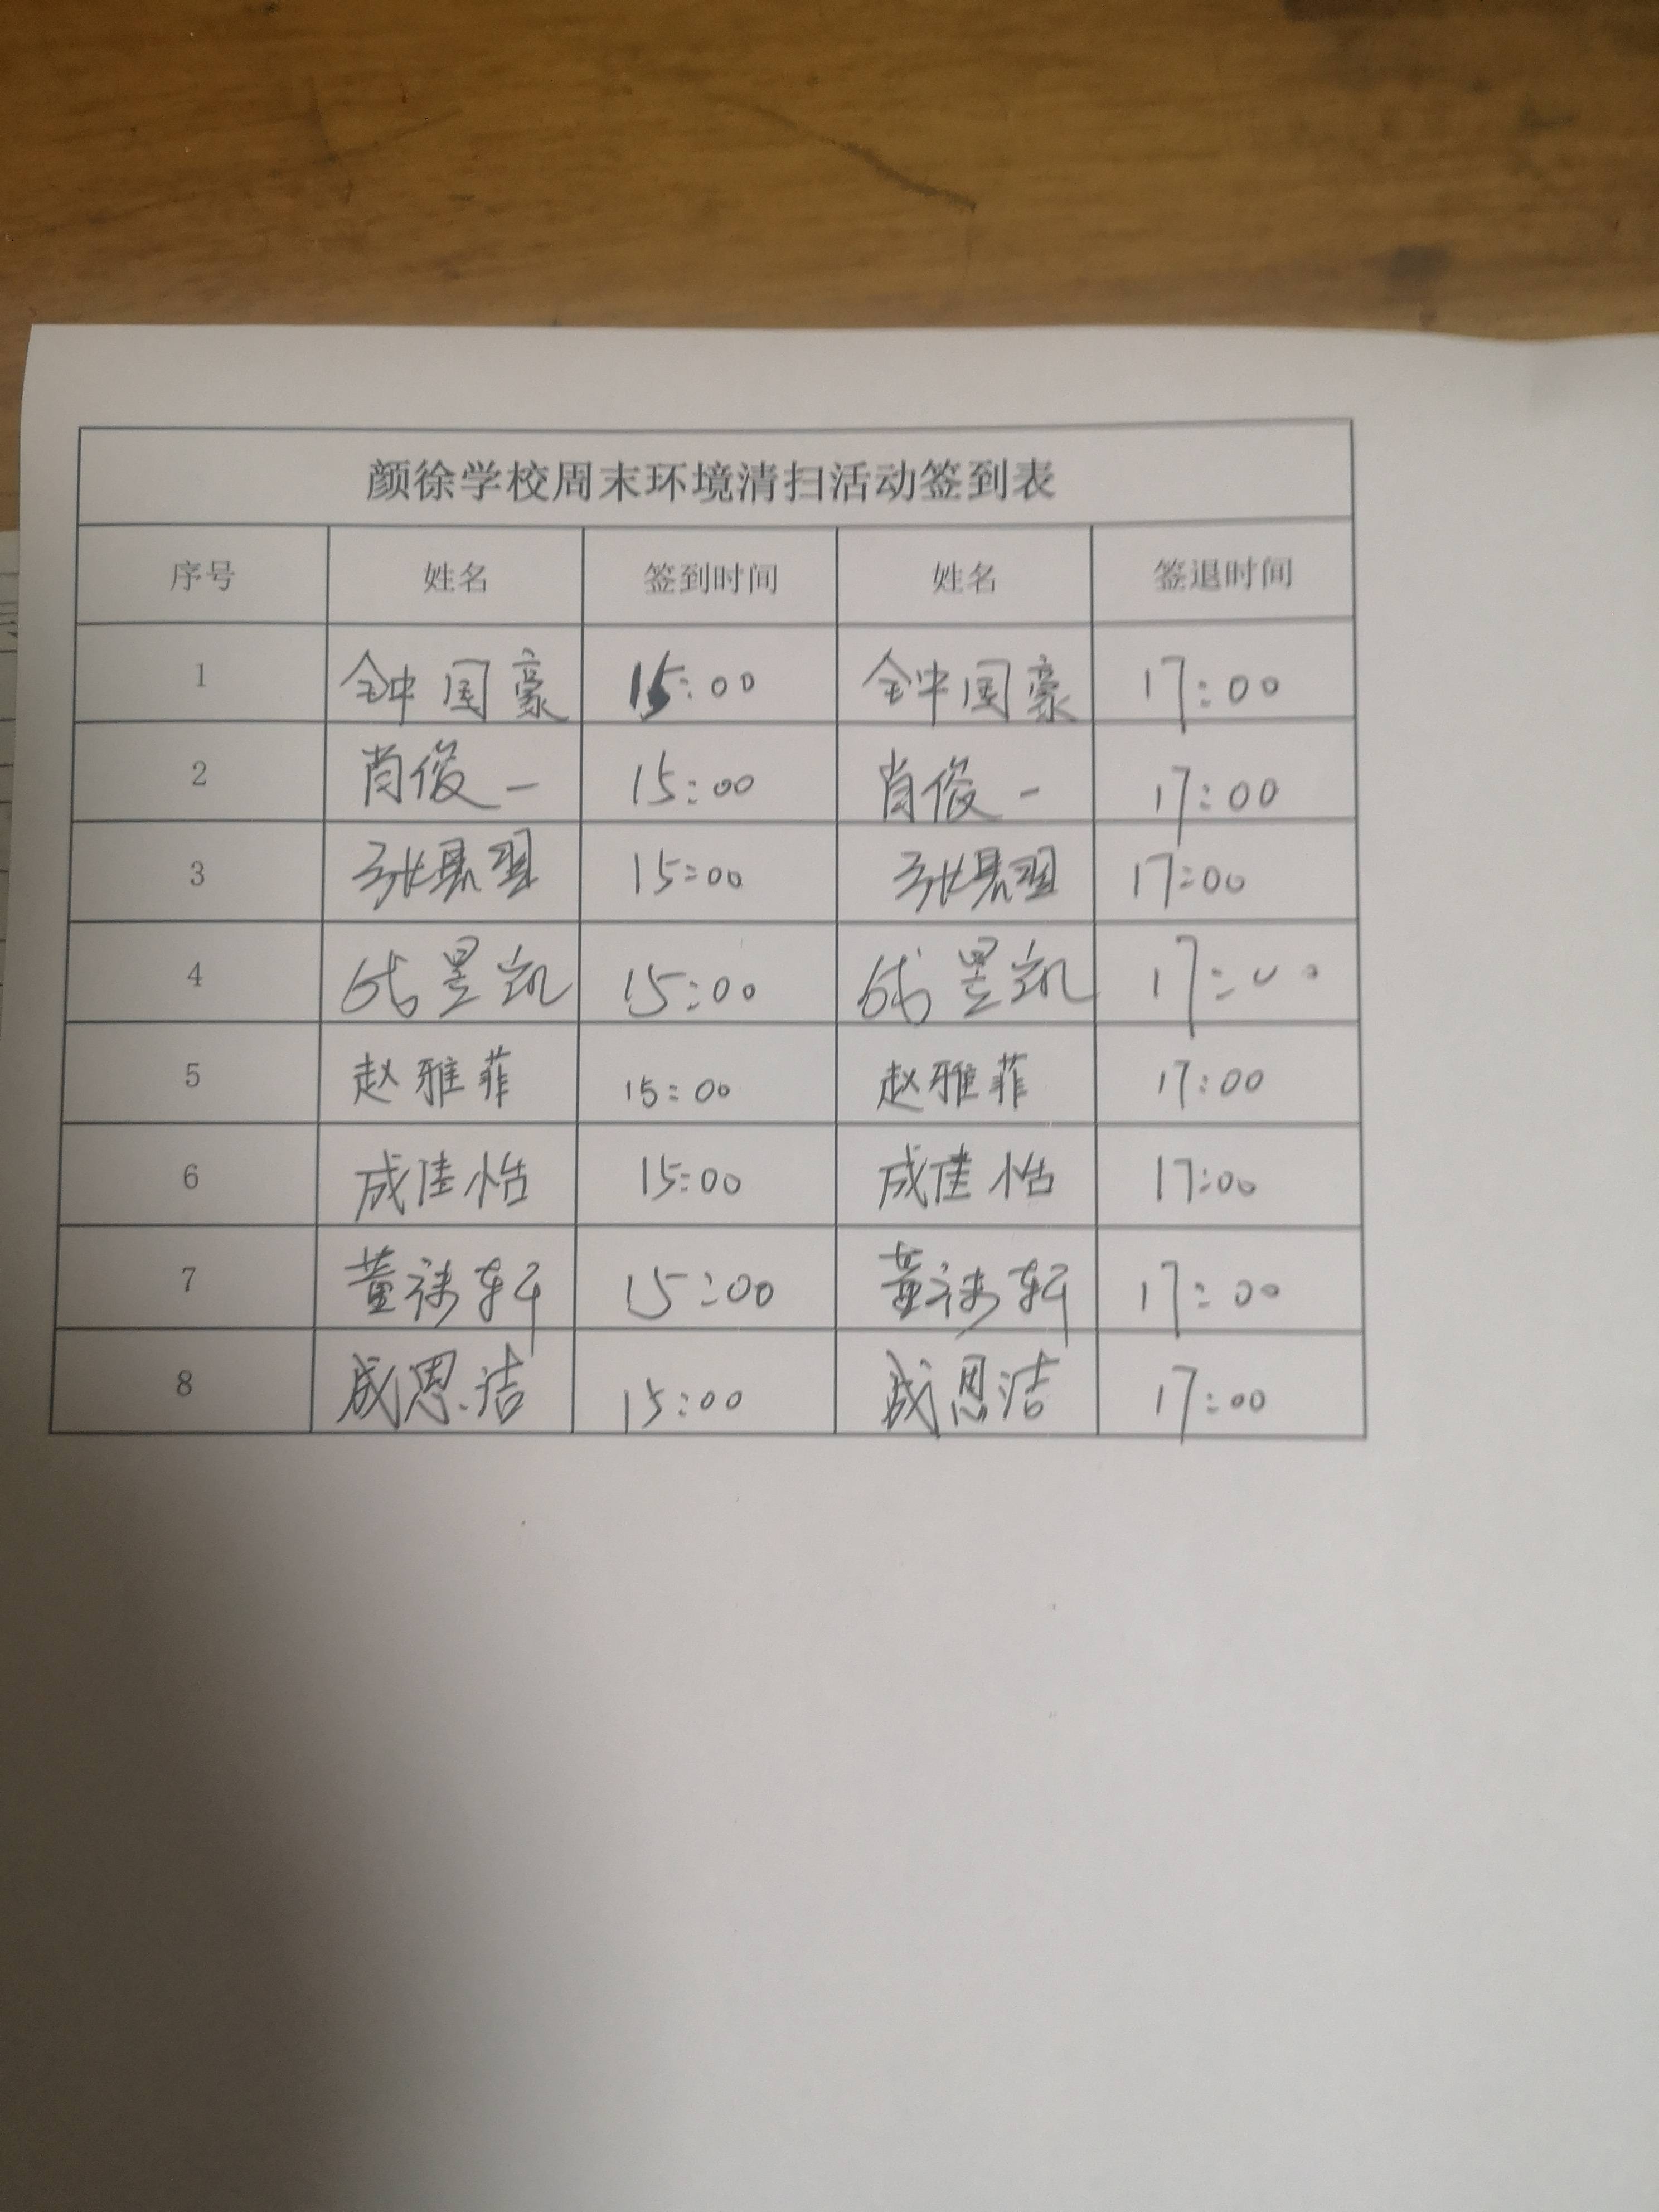 颜徐学校周末环境清扫活动签到表
序号 姓名 签到时间 姓名 签退时间
1 钟国豪 15:00 钟国豪 17:00
2 肖俊一 15:00 肖俊一 17:00
3 15:00 17:00
4 15:00 17:00
5 赵雅菲 15:00 赵雅菲 17:00
6 成佳怡 15:00 成佳怡 17:00
7 15:00 17:00
8 成思洁 15:00 成思洁 17:00